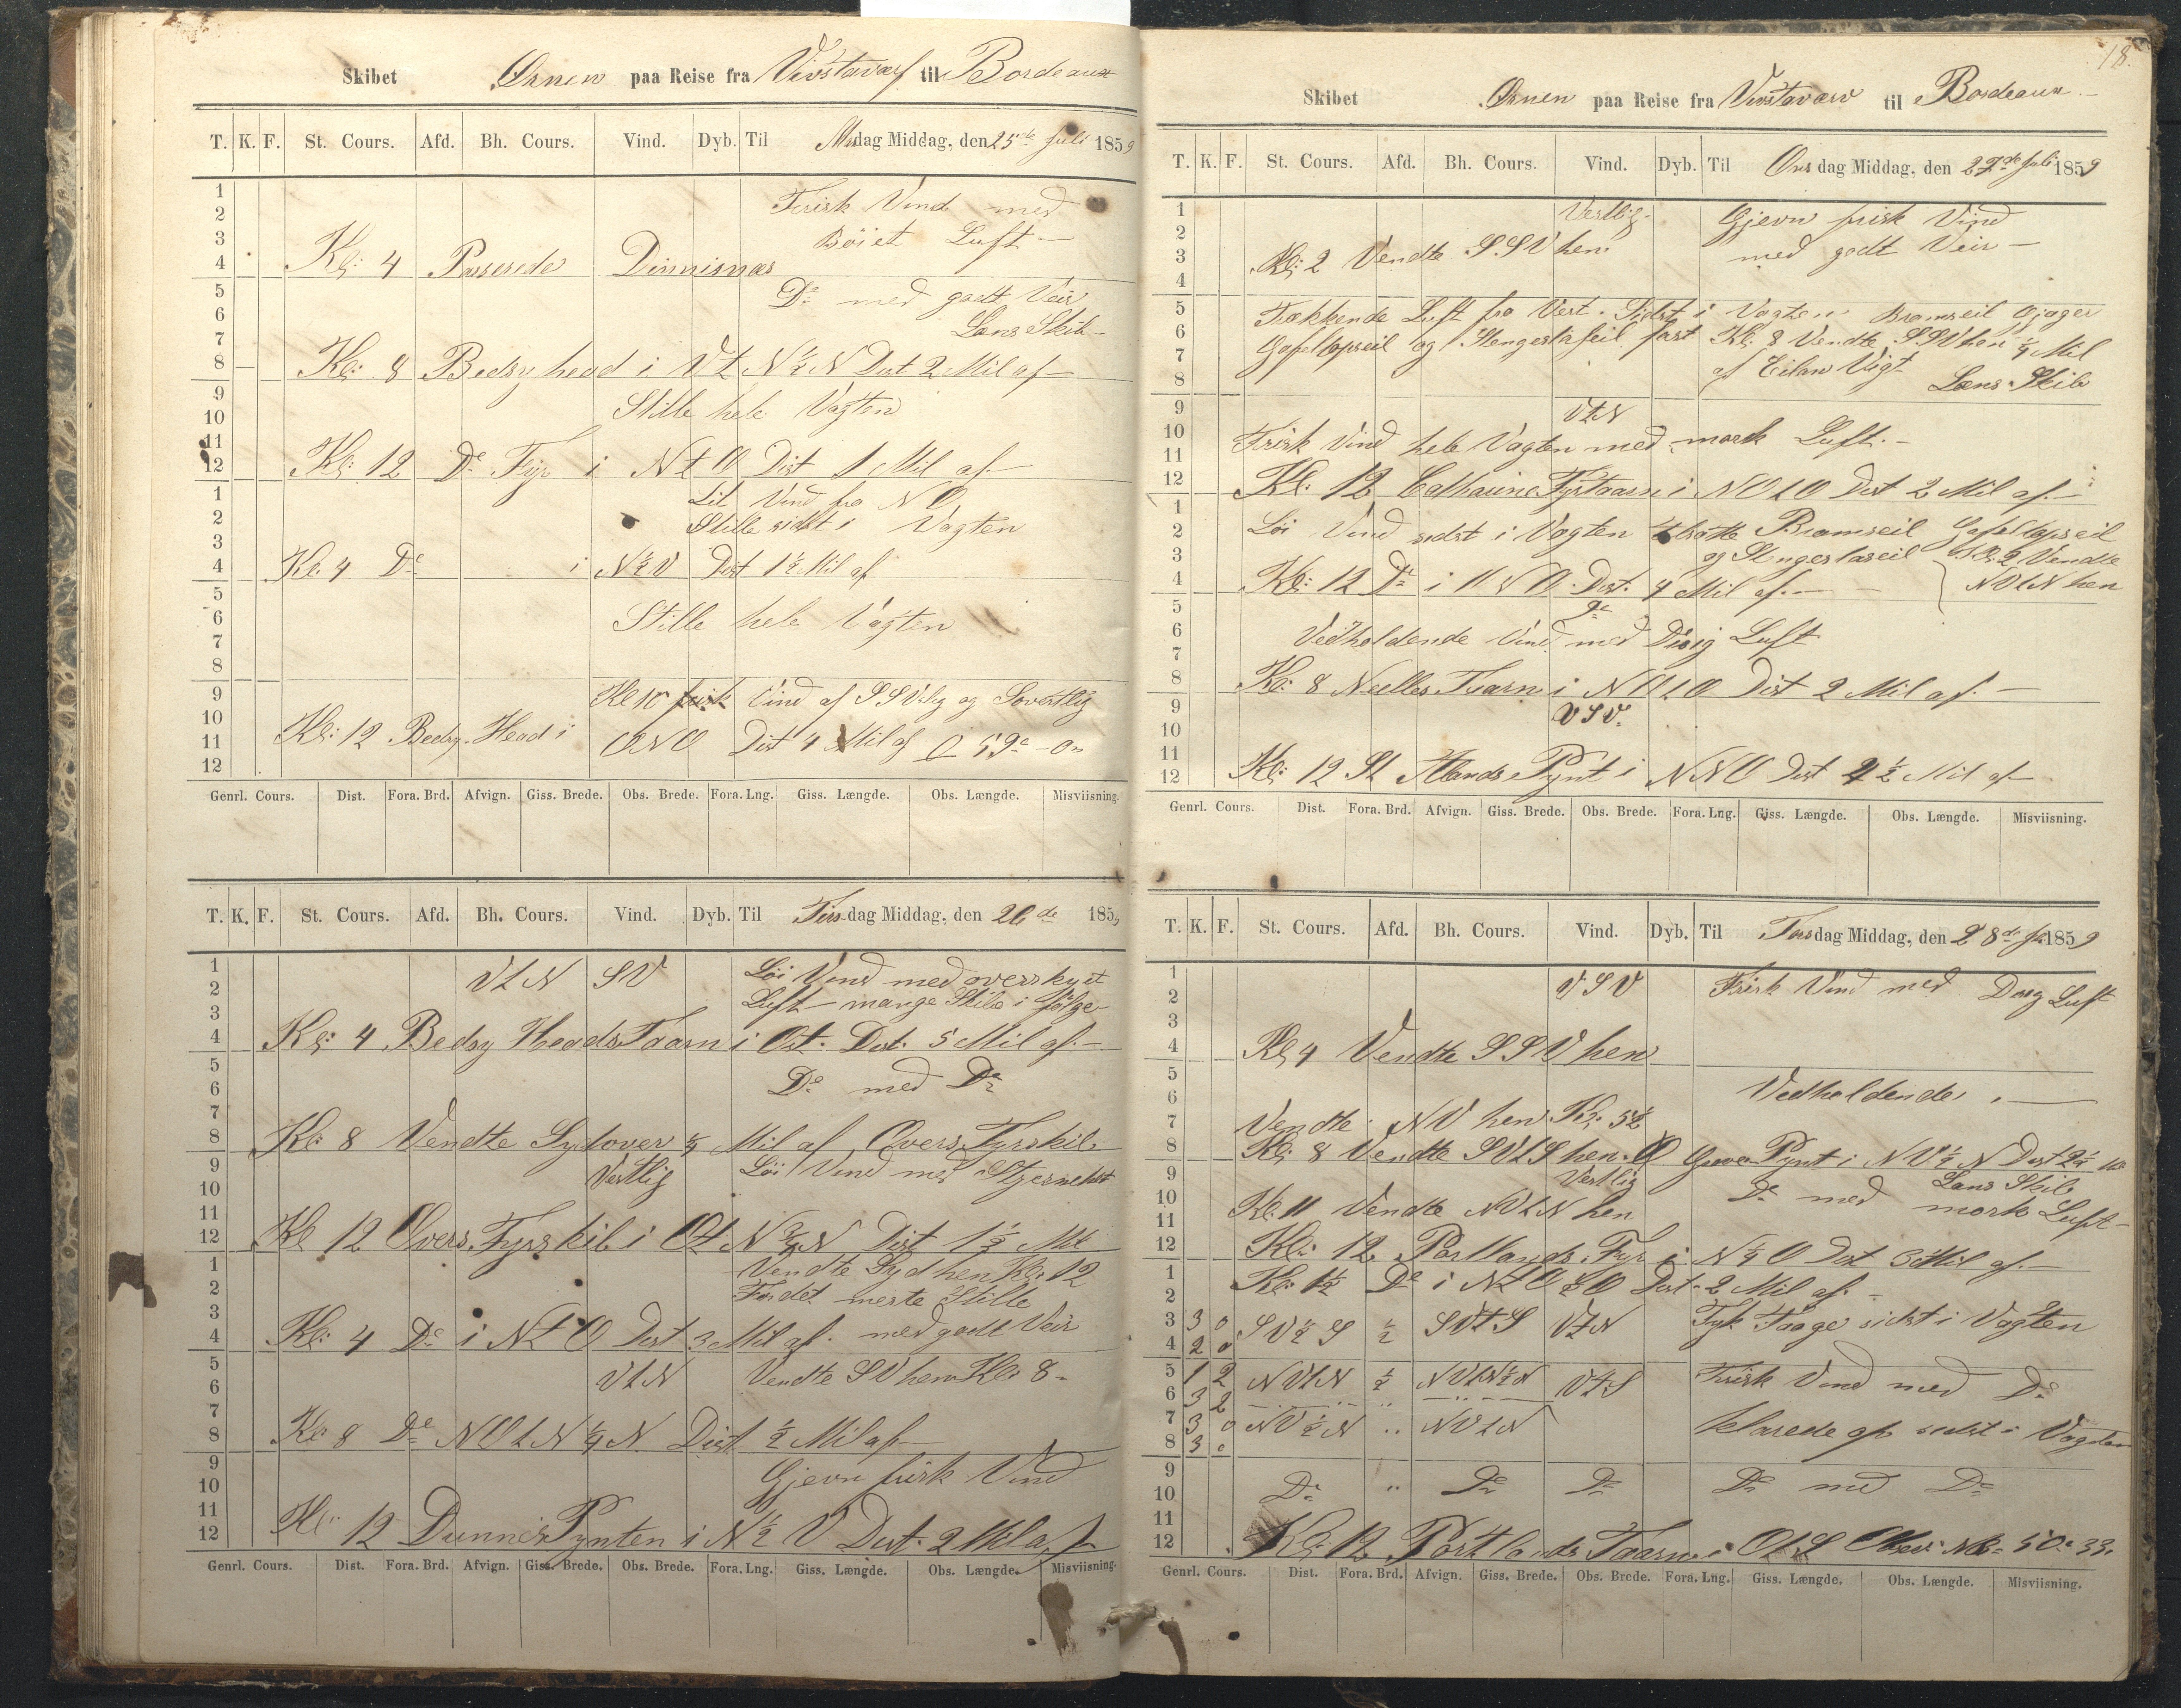 Skibet Ørnen paa Reise fra Vivstavarf til Bordeaux
T. K. F. St. Cours. Afd. Bh. Cours. Vind. Dyb. Til Mandag Middag, den 25de Juli 1859
1
2
3
4
5
6
7
8
9
10
11
12
1
2
3
4
5
6
7
8
9
10
11
12
Frisk Vind med
Böiet Luft —
Kl: 4 Passerede Dinnisnæs
Do med godt Veir
Lens Skib —
Kl: 8 Bedsyhead i Vt N ½ N Dist 2 Mil af —
Stille hele Vagten
Kl: 12 Do Fyr i N t O Dist 1 Mil af —
Lit Vind fra N O
Stille sidst i Vagten
Kl. 4 Do i N ½ V Dist 1½ Mil af
Stille hele Vagten
Kl 10 frisk Vind af SSVlig og Sovestlig
Kl: 12 Bedsy-Head i ONO Dist 4 Mil af
Genrl. Cours. Dist. Fora. Brd. Afvign. Giss. Brede. Obs. Brede. Fora. Lng. Giss. Længde. Obs. Længde. Misviisning.
T. K. F. St. Cours. Afd. Bh. Cours. Vind. Dyb. Til Tirsdag Middag, den 26de 1859
1
2
3
4
5
6
7
8
9
10
11
12
1
2
3
4
5
6
7
8
9
10
11
12
VtN SV Löi Vind med overskyet
Luft — mange Skibe i Fölge —
Kl: 4 Bedsy Heads Taarn i Ost. Dist. 5 Mil af. —
Do med Do
Kl: 8 Vendte Sydover ¼ Mil af Overs Fyrskib
Vestlig Löi Vind med Stjerneklar
Kl 12 Overs Fyrskib i Ot N ¾ N Dist 1½ Mil
Vendte Syd hen Kl: 12
For det meste Stille
Kl: 4 Do i N t O Dist 3 Mil af. med godt Veir
VtN Vendte SV hen Kl: 8 —
Kl: 8 Do NOtN ¼ N. Dist ½ Mil af —
Gjevn frisk Vind
Kl: 12 Dunnis Pynten i N ½ V Dist. 2 Mil af
Genrl. Cours. Dist. Fora. Brd. Afvign. Giss. Brede. Obs. Brede. Fora. Lng. Giss. Længde. Obs. Længde. Misviisning.
18.
Skibet Ørnen paa Reise fra Vivstavarv til Bordeaux —
T. K. F. St. Cours. Afd. Bh. Cours. Vind. Dyb. Til Onsdag Middag, den 27de Juli 1859
1
2
3
4
5
6
7
8
9
10
11
12
1
2
3
4
5
6
7
8
9
10
11
12
Vestlig — Gjevn frisk Vind
med godt Veir —
Kl: 2 Vendte S.SV hen
Trækkende Luft fra Vest. Sidst i Vagten Bramseil
Gafeltopseil og Stengestaseil fast Kl: 8 Vendte SSV hen ¼ Mil
af Eiland Vigt
Lens Skib
VtN
Frisk Vind hele Vagten med mørk Luft. —
Kl: 12 Catharine Fyrtaarn i NOtO Dist 2 Mil af. —
Löi Vind sidst i Vagten tilsatte Bramseil Gafeltopseil
og Stengestaseil Kl: 2 Vendte
NVtN hen
Kl: 12 Do i NO Dist. 4 Mil af. —
Do
Vedholdende Vind med Disig Luft
Kl: 8 Nedles Taarn i NOtO Dist 2 Mil af. —
VSV.
Kl: 12 St Albands Pynt i NNO Dist 4½ Mil af —
Genrl. Cours. Dist. Fora. Brd. Afvign. Giss. Brede. Obs. Brede. Fora. Lng. Giss. Længde. Obs. Længde. Misviisning.
T. K. F. St. Cours. Afd. Bh. Cours. Vind. Dyb. Til Torsdag Middag, den 28de Ju 1859
1
2
3
4
5
6
7
8
9
10
11
12
1
2
3 3 0
4 2 0
5 1 2
6 3 2
7 3 0
8 3 0
9
10
11
12
VSV Frisk Vind med Disig Luft
Kl 4 Vendte SSV hen
Vedholdende. —
Vendte NV hen Kl: 5½
Kl: 8 Vendte SVtS hen. Pynt i NV ½ N Dist 2½ M
Vestlig Lens Skib
Do med mørk Luft —
Kl: 11 Vendte NVtN hen
Kl: 12 Portlands Fyr i N ¼ O Dist 3 Mil af. —
Kl: 1½ Do i NtO ½ O Dist. 2 Mil af. —
SV ½ S ½ SVtS VtN Tyk Taage sidst i Vagten
NVtN ½ NVtN½N VtS Frisk Vind med Do
NV ½ N " NVtN klarede op sidst i Vagten
Do " Do Do Do med Do
Kl: 12 Portlands Taarn i OtS Obser: NB: 50° 33.
Genrl. Cours. Dist. Fora. Brd. Afvign. Giss. Brede. Obs. Brede. Fora. Lng. Giss. Længde. Obs. Længde. Misviisning.